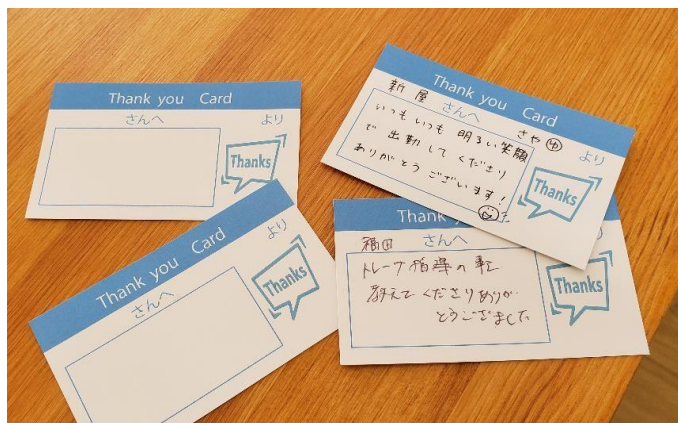 Thank you Card
さんへ
より
Thanks
Thank you Card
新屋 さんへ
さや ゆ より
いつもいつも 明るい笑顔
で 出勤して くださり
ありがとう ございます!
Thanks
Thank you Card
さんへ
より
Thanks
Thank
福田 さんへ
トレーナ指導の事
教えてくださりありが
とうございました
Thanks